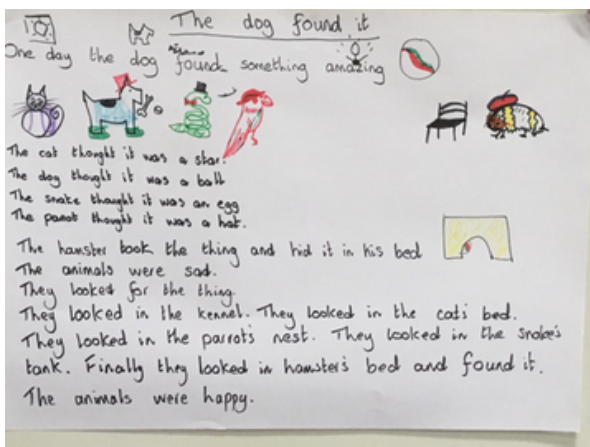 The dog found it
One day the dog found something amazing
The cat thought it was a star.
The dog thought it was a ball
The snake thought it was an egg
The parrot thought it was a hat.
The hamster took the thing and hid it in his bed
The animals were sad.
They looked for the thing.
They looked in the kennel. They looked in the cat's bed.
They looked in the parrot's nest. They looked in the snake's
tank. Finally they looked in hamster's bed and found it.
The animals were happy.